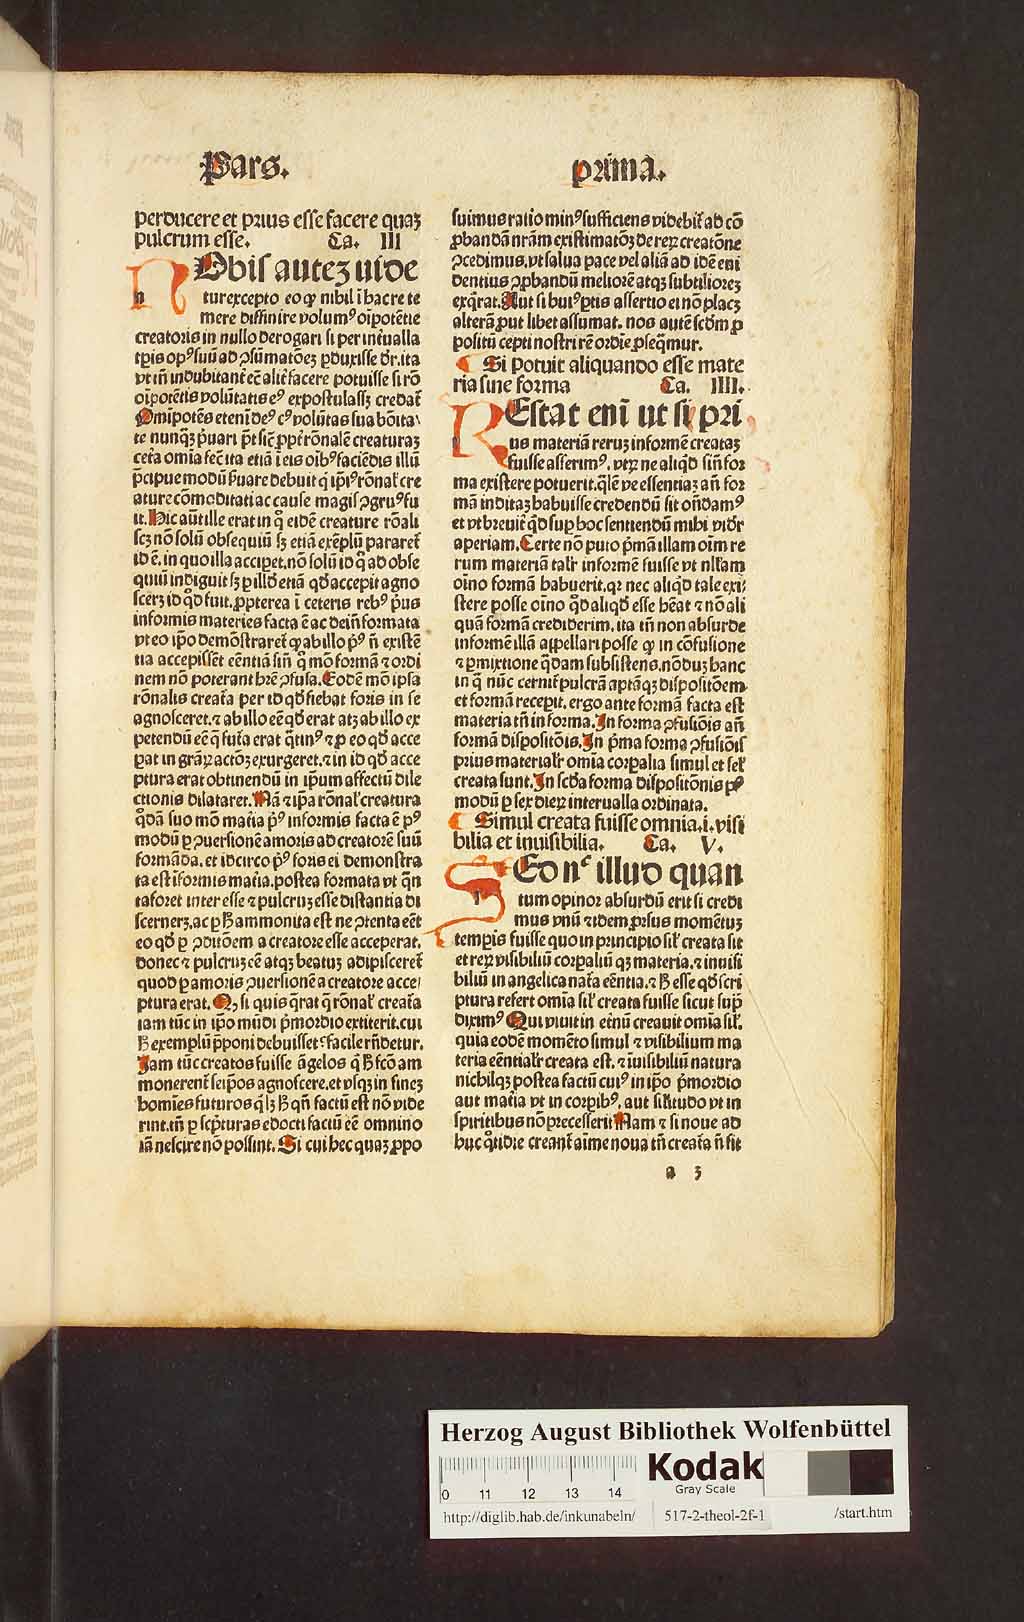 Pars. prima.
perducere et prius esse facere quaꝫ
pulcrum esse. Ca. III
NObis auteꝫ uide
tur excepto eo ꝙ nihil ī hac re te
mere diffinire volumꝰ oīpotētie
creatoris in nullo derogari si per int̄ualla
tꝑis opꝰ suū ad ꝯsūmatōeꝫ ꝑduxisse dr̄. ita
vt tn̄ indubitant̄ eē alit̄ facere potuisse si rō
oīpotētis volūtatis eꝰ expostulassꝫ credat̄
Omīpotēs etenī deꝰ cꝰ volūtas sua bōita
te nunqꝫ pͥuari pt̄ sic̄ ꝓpt̄ rōnalē creaturaꝫ
cet̄a om̄ia fec̄ ita etiā ī eis oībꝰ faciēdis illū
p̄cipue modū ẜuare debuit q̄ ip̄iꝰ rōnal̓ cre
ature cōmoditati ac cause magis ꝯgruꝰ fu
it. Hic aūt ille erat in q̄ eidē creature rōali
scꝫ nō solū obsequiū sꝫ etiā exēplū pararet̄
id ē. in quo illa accipet̄. nō solū id q̄ ad obse
quiū indiguit sꝫ ꝑ illd̄ etiā qd̄ accepit agno
scerꝫ id qd̄ fuit. ꝓpterea ī ceteris rebꝰ pͥus
informis materies facta ē ac dein̄ formata
vt eo ip̄o demōstraret̄ ꝙ ab illo pͥꝰ n̄ existē
tia accepisset eēntiā sin̄ q̄ mō formā ⁊ ordi
nem nō poterant hr̄e ꝯfusa. Eodē mō ipsa
rōnalis creat̄a per id qd̄ fiebat foris in se
agnosceret. ⁊ ab illo eē qd̄ erat atqꝫ ab illo ex
petendū eē q̄ fut̄a erat q̄tinꝰ ⁊ ꝑ eo qd̄ acce
ꝑat in gr̄aꝝ actōꝫ exurgeret. ⁊ in id qd̄ acce
ptura erat obtinendū in ip̄um affectū dile
ctionis dilataret. Nā ⁊ ip̄a rōnal̓ creatura
q̄dā suo mō mat̄ia pͥꝰ informis facta ē pꝰ
modū ꝑ ꝯuersionē amoris ad creatorē suū
formāda. et idcirco pͥꝰ foris ei demonstra
ta est īformis mat̄ia. postea formata vt q̄n
ta foret inter esse ⁊ pulcruꝫ esse distantia di
scernerꝫ. ac ꝑ ħ ammonita est ne ꝯtenta eēt
eo qd̄ ꝑ ꝯditōem a creatore esse acceperat.
donec ⁊ pulcruꝫ eē atqꝫ beatuꝫ adipisceret̄
quod ꝑ amoris ꝯuersionē a creatore acce
ptura erat. Qꝫ si quis q̄rat q̄ rōnal̓ creat̄a
iam tūc in ip̄o mūdi pͥmordio extiterit. cui
ħ exemplū ꝓponi debuisset facile rn̄detur.
Jam tūc creatos fuisse āgelos q̄ ħ fcō am
monerent̄ seip̄os agnoscere. et vsqꝫ in fineꝫ
homīes futuros qͥ lꝫ ħ qn̄ factū est nō vide
rint. tn̄ ꝑ scͥpturas edocti factū eē omnino
iā nescire nō possint. Si cui hec quaꝫ ꝓpo
suimus ratio minꝰ sufficiens videbit̄ ad cō
ꝓbandā nr̄am existimatōꝫ de reꝝ creatōne
ꝯcedimus. vt salua pace vel aliā ad idē eui
dentius ꝯꝓbandū meliorē atqꝫ subtiliorem
exq̄rat. Aut si huiꝰ ꝑtis assertio ei nō placꝫ
alterā ꝓut libet assumat. nos autē scd̄m ꝓ
politū cepti nostri rē ordie ꝓseq̄mur.
Si potuit aliquando esse mate
ria sine forma Ca. IIII.
REstat enī ut si pri
us materiā reruꝫ informē createꝫ
fuisse asserimꝰ. vtꝝ ne aliqd̄ sin̄ for
ma existere potuerit. q̄lē ve essentiaꝫ an̄ for
mā inditaꝫ habuisse credendū sit on̄damꝰ
et vt breuit̄ qd̄ suꝑ hoc sentiendū mihi vidr̄
aperiam. Certe nō puto pͥmā illam oīm re
rum materiā talr̄ informē fuisse vt nll̄am
oīno formā habuerit. qꝛ nec aliqd̄ tale exi
stere posse oīno qd̄ aliqd̄ esse hēat ⁊ nō ali
quā formā crediderim. ita tn̄ non absurde
informē illā appellari posse ꝙ in cōfusione
⁊ ꝑmixtione q̄dam subsistens. nō duꝫ hanc
in q̄ nūc cernit̄ pulcrā aptāqꝫ dispositōem
et formā recepit. ergo ante formā facta est
materia tn̄ in forma. In forma ꝯfusiōis an̄
formā dispositōis. In pͥma forma ꝯfusiōis
prius materialr̄ om̄ia corꝑalia simul et sel̓
creata sunt. In scd̄a forma dispositōnis pꝰ
modū ꝑ sex dieꝝ interualla ordinata.
Simul creata fuisse omnia .i. visi
bilia et inuisibilia. Ca. V.
SEd nᶜ illud quan
tum opinor absurdū erit si credi
mus vnū ⁊ idem ꝓrsus momētuꝫ
temꝑis fuisse quo in principio sil̓ creata sit
et reꝝ visibiliū corꝑaliū qꝫ materia. ⁊ inuisi
biliū in angelica nat̄a eēntia. ⁊ ħ esse qd̄ scri
ptura refert om̄ia sil̓ creata fuisse sicut supͣ
diximꝰ Qui viuit in et̄nū creauit om̄ia sil̓.
quia eodē momēto simul ⁊ visibilium ma
teria eēntialr̄ creata est. ⁊ īuisibiliū natura
nichilqꝫ postea factū cuiꝰ in ip̄o pͥmordio
aut mat̄ia vt in corꝑibꝰ. aut sil̓itudo vt in
spiritibus nō precesserit Nam ⁊ si noue ad
huc q̄tidie creant̄ aīme noua tn̄ creat̄a n̄ fit
a 3
Herzog August Bibliothek Wolfenbüttel
0 11 12 13 14
Kodak
Gray Scale
http://diglib.hab.de/inkunabeln/ 517-2-theol-2f-1 /start.htm